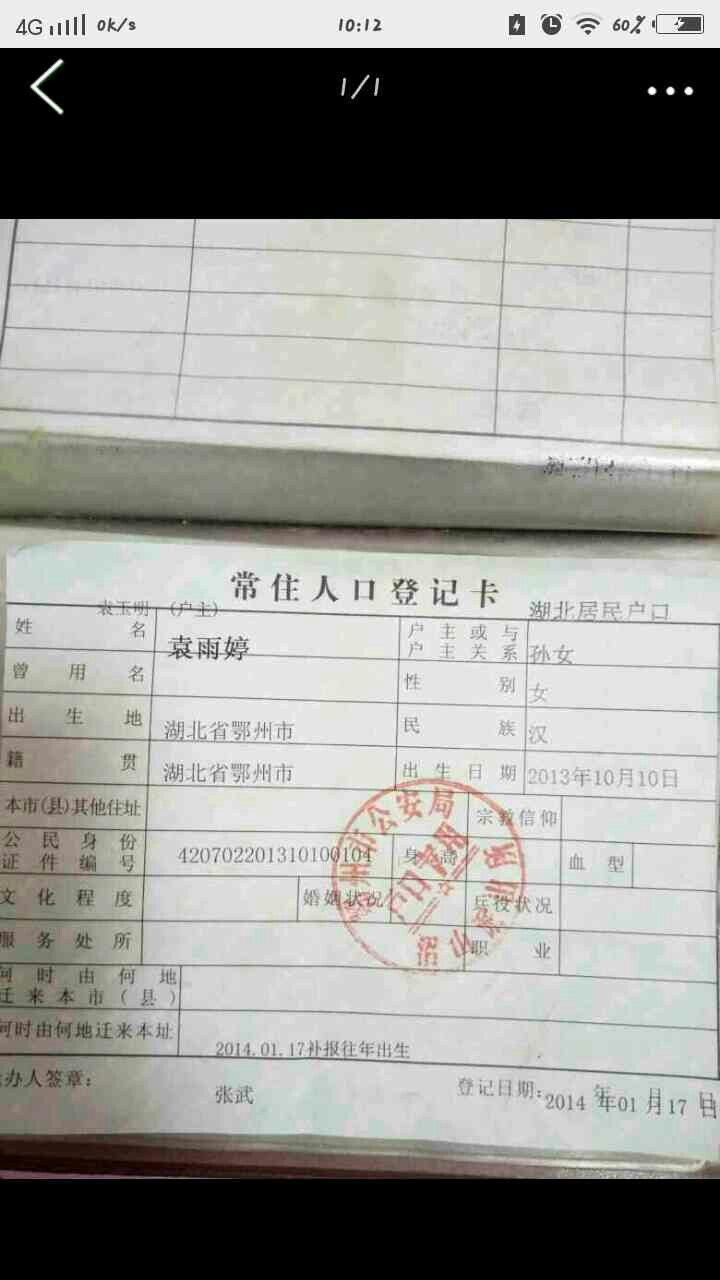 4G 0k/s 10:12 60%
1/1
常住人口登记卡
袁玉明 (户主) 湖北居民户口
姓名 袁雨婷 户主或与户主关系 孙女
曾用名 性别 女
出生地 湖北省鄂州市 民族 汉
籍贯 湖北省鄂州市 出生日期 2013年10月10日
本市(县)其他住址 宗教信仰
公民身份证件编号 420702201310100104 身高 血型
文化程度 婚姻状况 兵役状况
服务处所 职业
何时由何地迁来本市(县)
何时由何地迁来本址 2014.01.17补报往年出生
办人签章: 张武 登记日期: 2014年01月17日
年 月 日
市公安局
户口专用